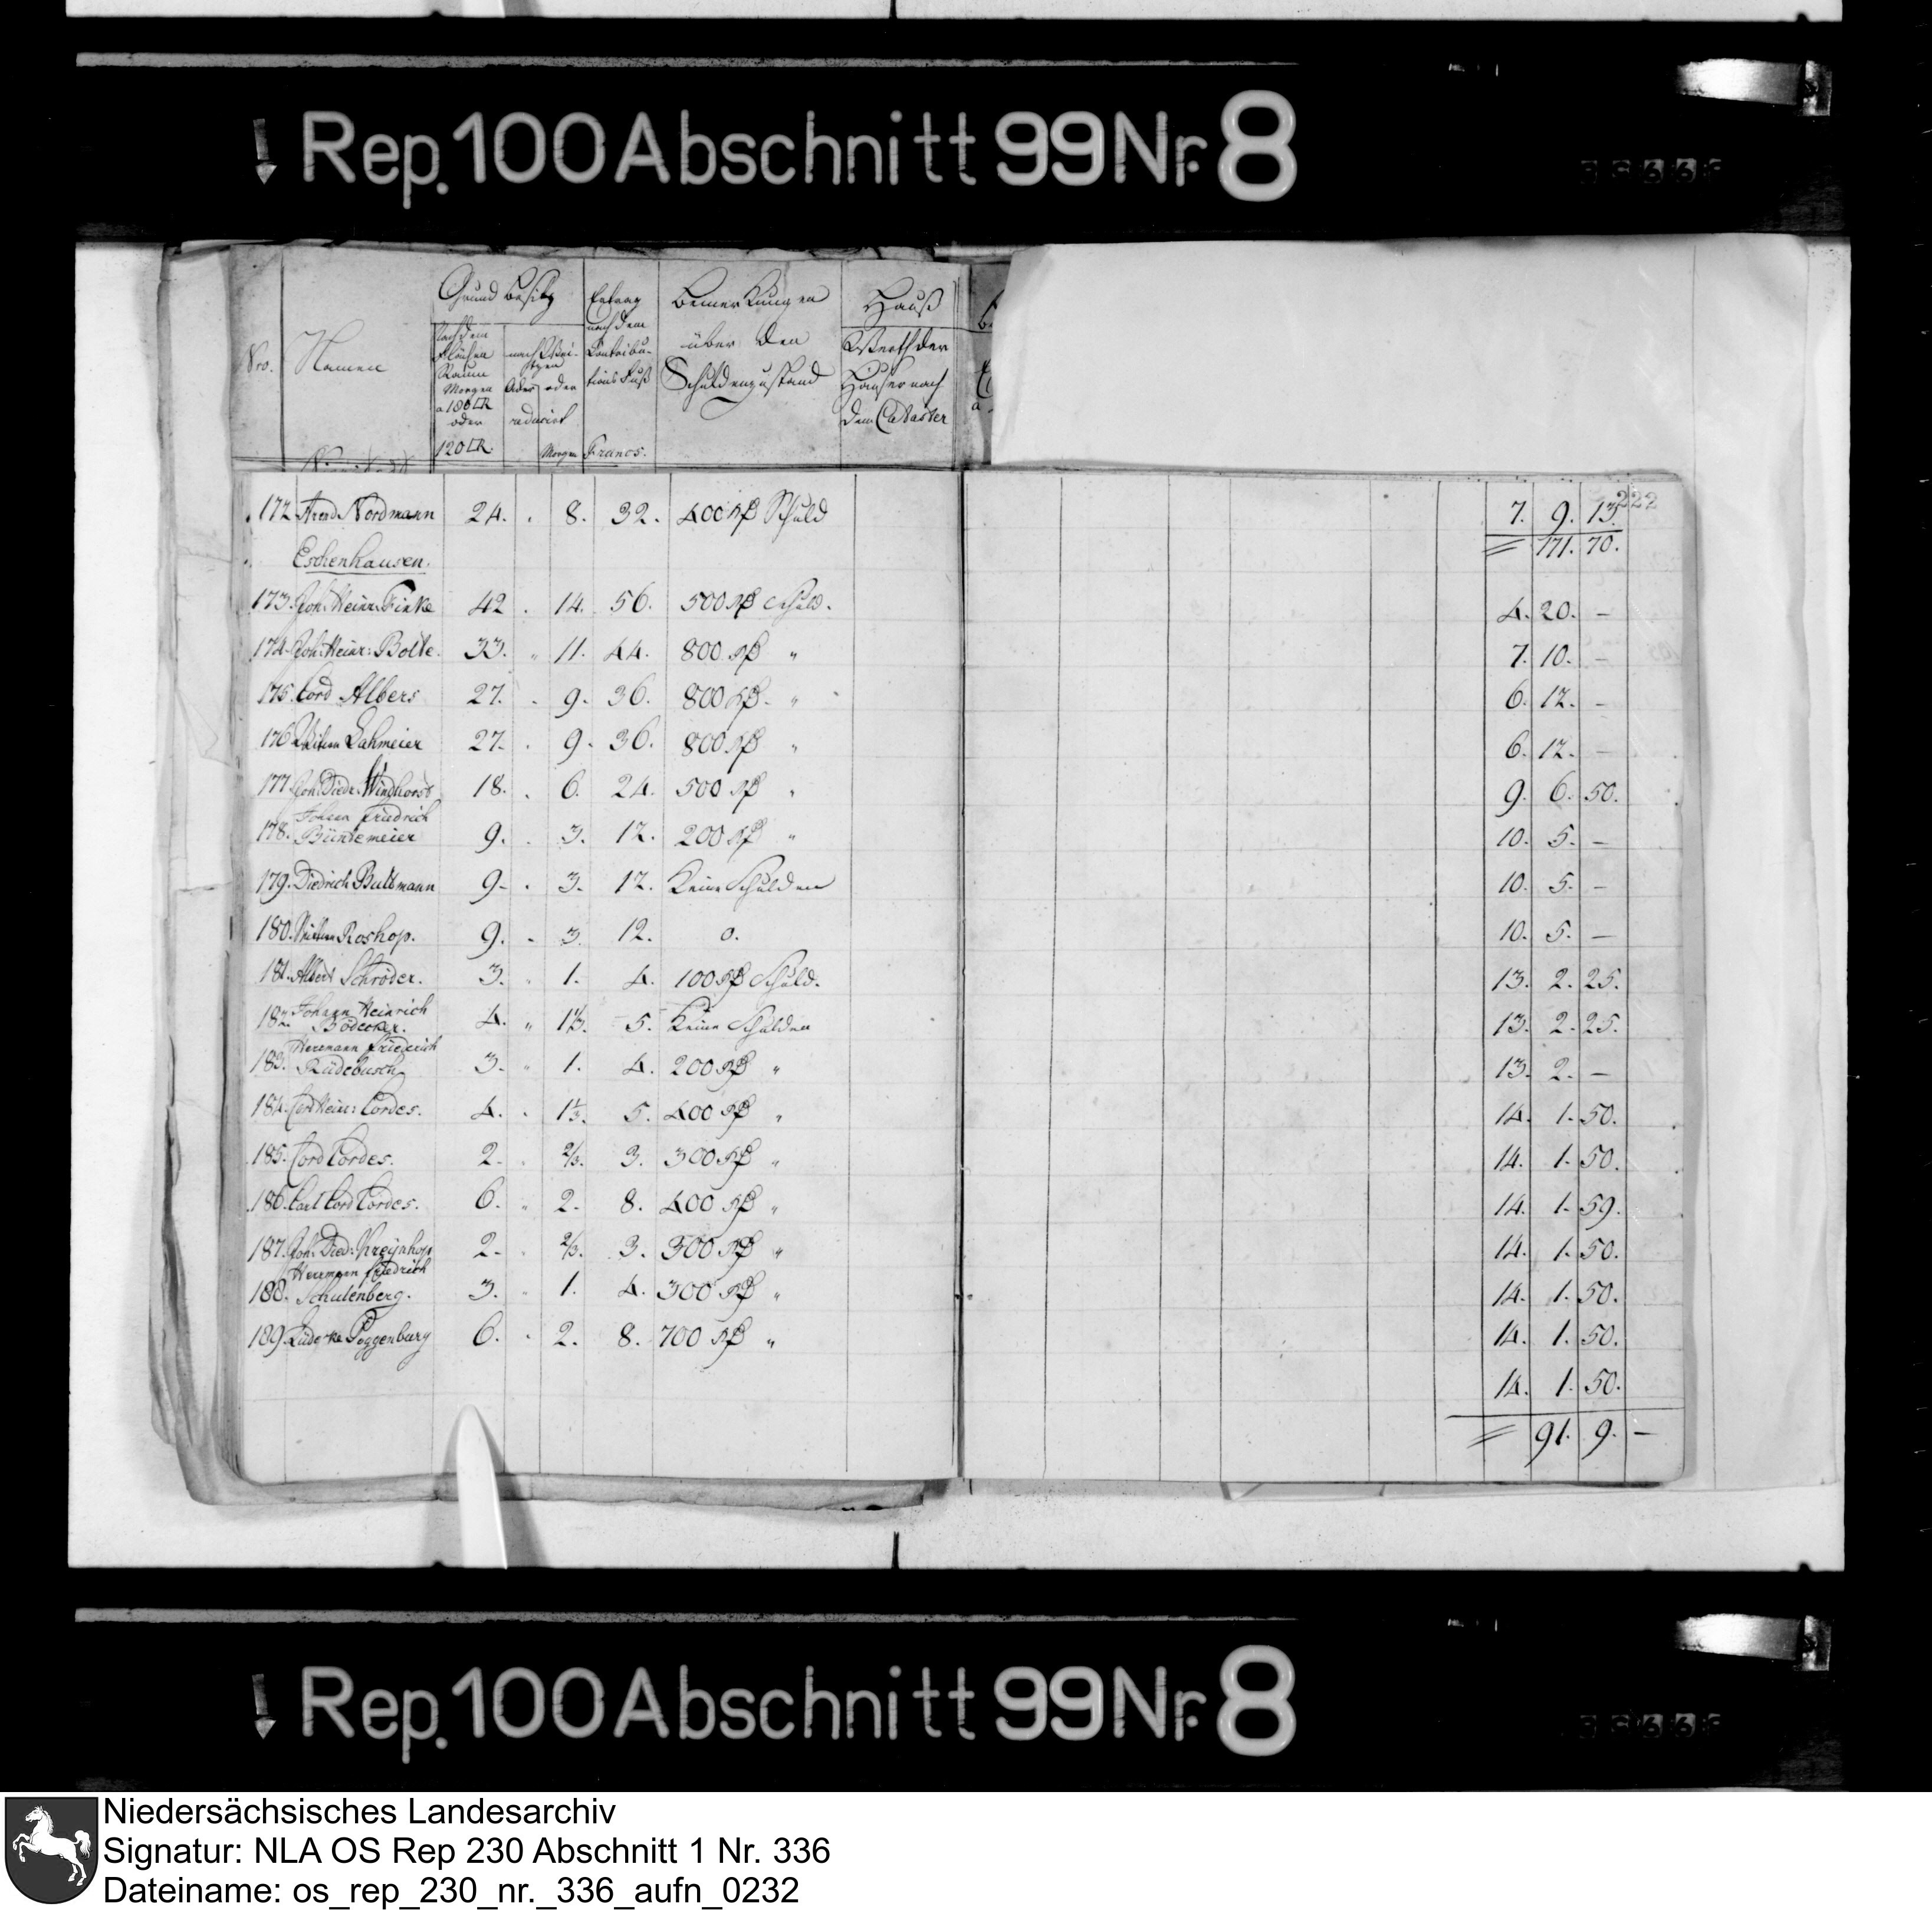 Rep. 100 Abschnitt 99 Nr. 8
Nro.
Namen
Grund Besitz
nach dem Flächen Raum Morgen a 180 □R oder 120 □R.
nach
oder
reducirt
Morgen
Ertrag nach dem Contributions Fuß
Francs.
Bemerkungen über den Schuldenzustand
Hauß
Werth der Häuser nach dem Cataster
222
172 Arend Nordmann 24. . 8. 32. 400 rß Schuld 7. 9. 13.
171. 70.
Eschenhausen.
173. Joh: Heinr: Finke 42 . 14. 56. 500 rß Schuld. 4. 20. –
174. Joh: Heinr: Bolte. 33. " 11. 44. 800 rß " 7. 10. –
175. Cord Albers 27. . 9. 36. 800 rß. " 6. 12. –
176 Wittwe Lahmeier 27. . 9. 36. 800 rß " 6. 12. –
177. Joh: Diedr: Windhorst 18. . 6. 24. 500 rß " 9. 6. 50.
178. Johann Friedrich Büntemeier 9. . 3. 12. 200 rß " 10. 5. –
179. Diedrich Bultmann 9. . 3. 12. Keine Schulden 10. 5. –
180. Wittwe Roshop. 9. . 3. 12. o. 10. 5. –
181. Albert Schröder. 3. " 1. 4. 100 rß Schuld. 13. 2. 25.
182. Johann Heinrich Bödecker. 4. " 1 1/3. 5. Keine Schulden 13. 2. 25.
183. Herrmann Friederich Rüdebusch 3. " 1. 4. 200 rß " 13. 2. –
184. Cord Heinr: Cordes. 4. . 1 1/3. 5. 400 rß " 14. 1. 50.
185. Cord Cordes. 2. . 2/3. 3. 300 rß " 14. 1. 50.
186. Carl Cord Cordes. 6. " 2. 8. 400 rß " 14. 1. 59.
187. Joh: Died: Kreynhop 2. . 2/3. 3. 300 rß " 14. 1. 50.
188. Herrmann Friedrich Schulenberg. 3. " 1. 4. 300 rß " 14. 1. 50.
189. Lüdecke Poggenburg 6. . 2. 8. 700 rß " 14. 1. 50.
14. 1. 50.
91. 9. –
Rep. 100 Abschnitt 99 Nr. 8
Niedersächsisches Landesarchiv
Signatur: NLA OS Rep 230 Abschnitt 1 Nr. 336
Dateiname: os_rep_230_nr._336_aufn_0232